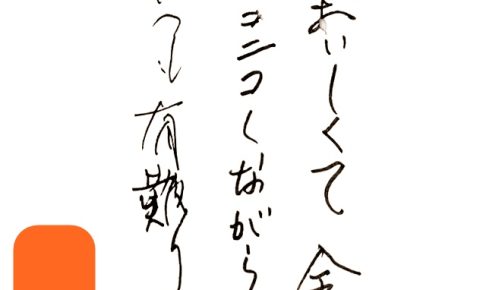 おいしくて
コニコしながら
つも有難り